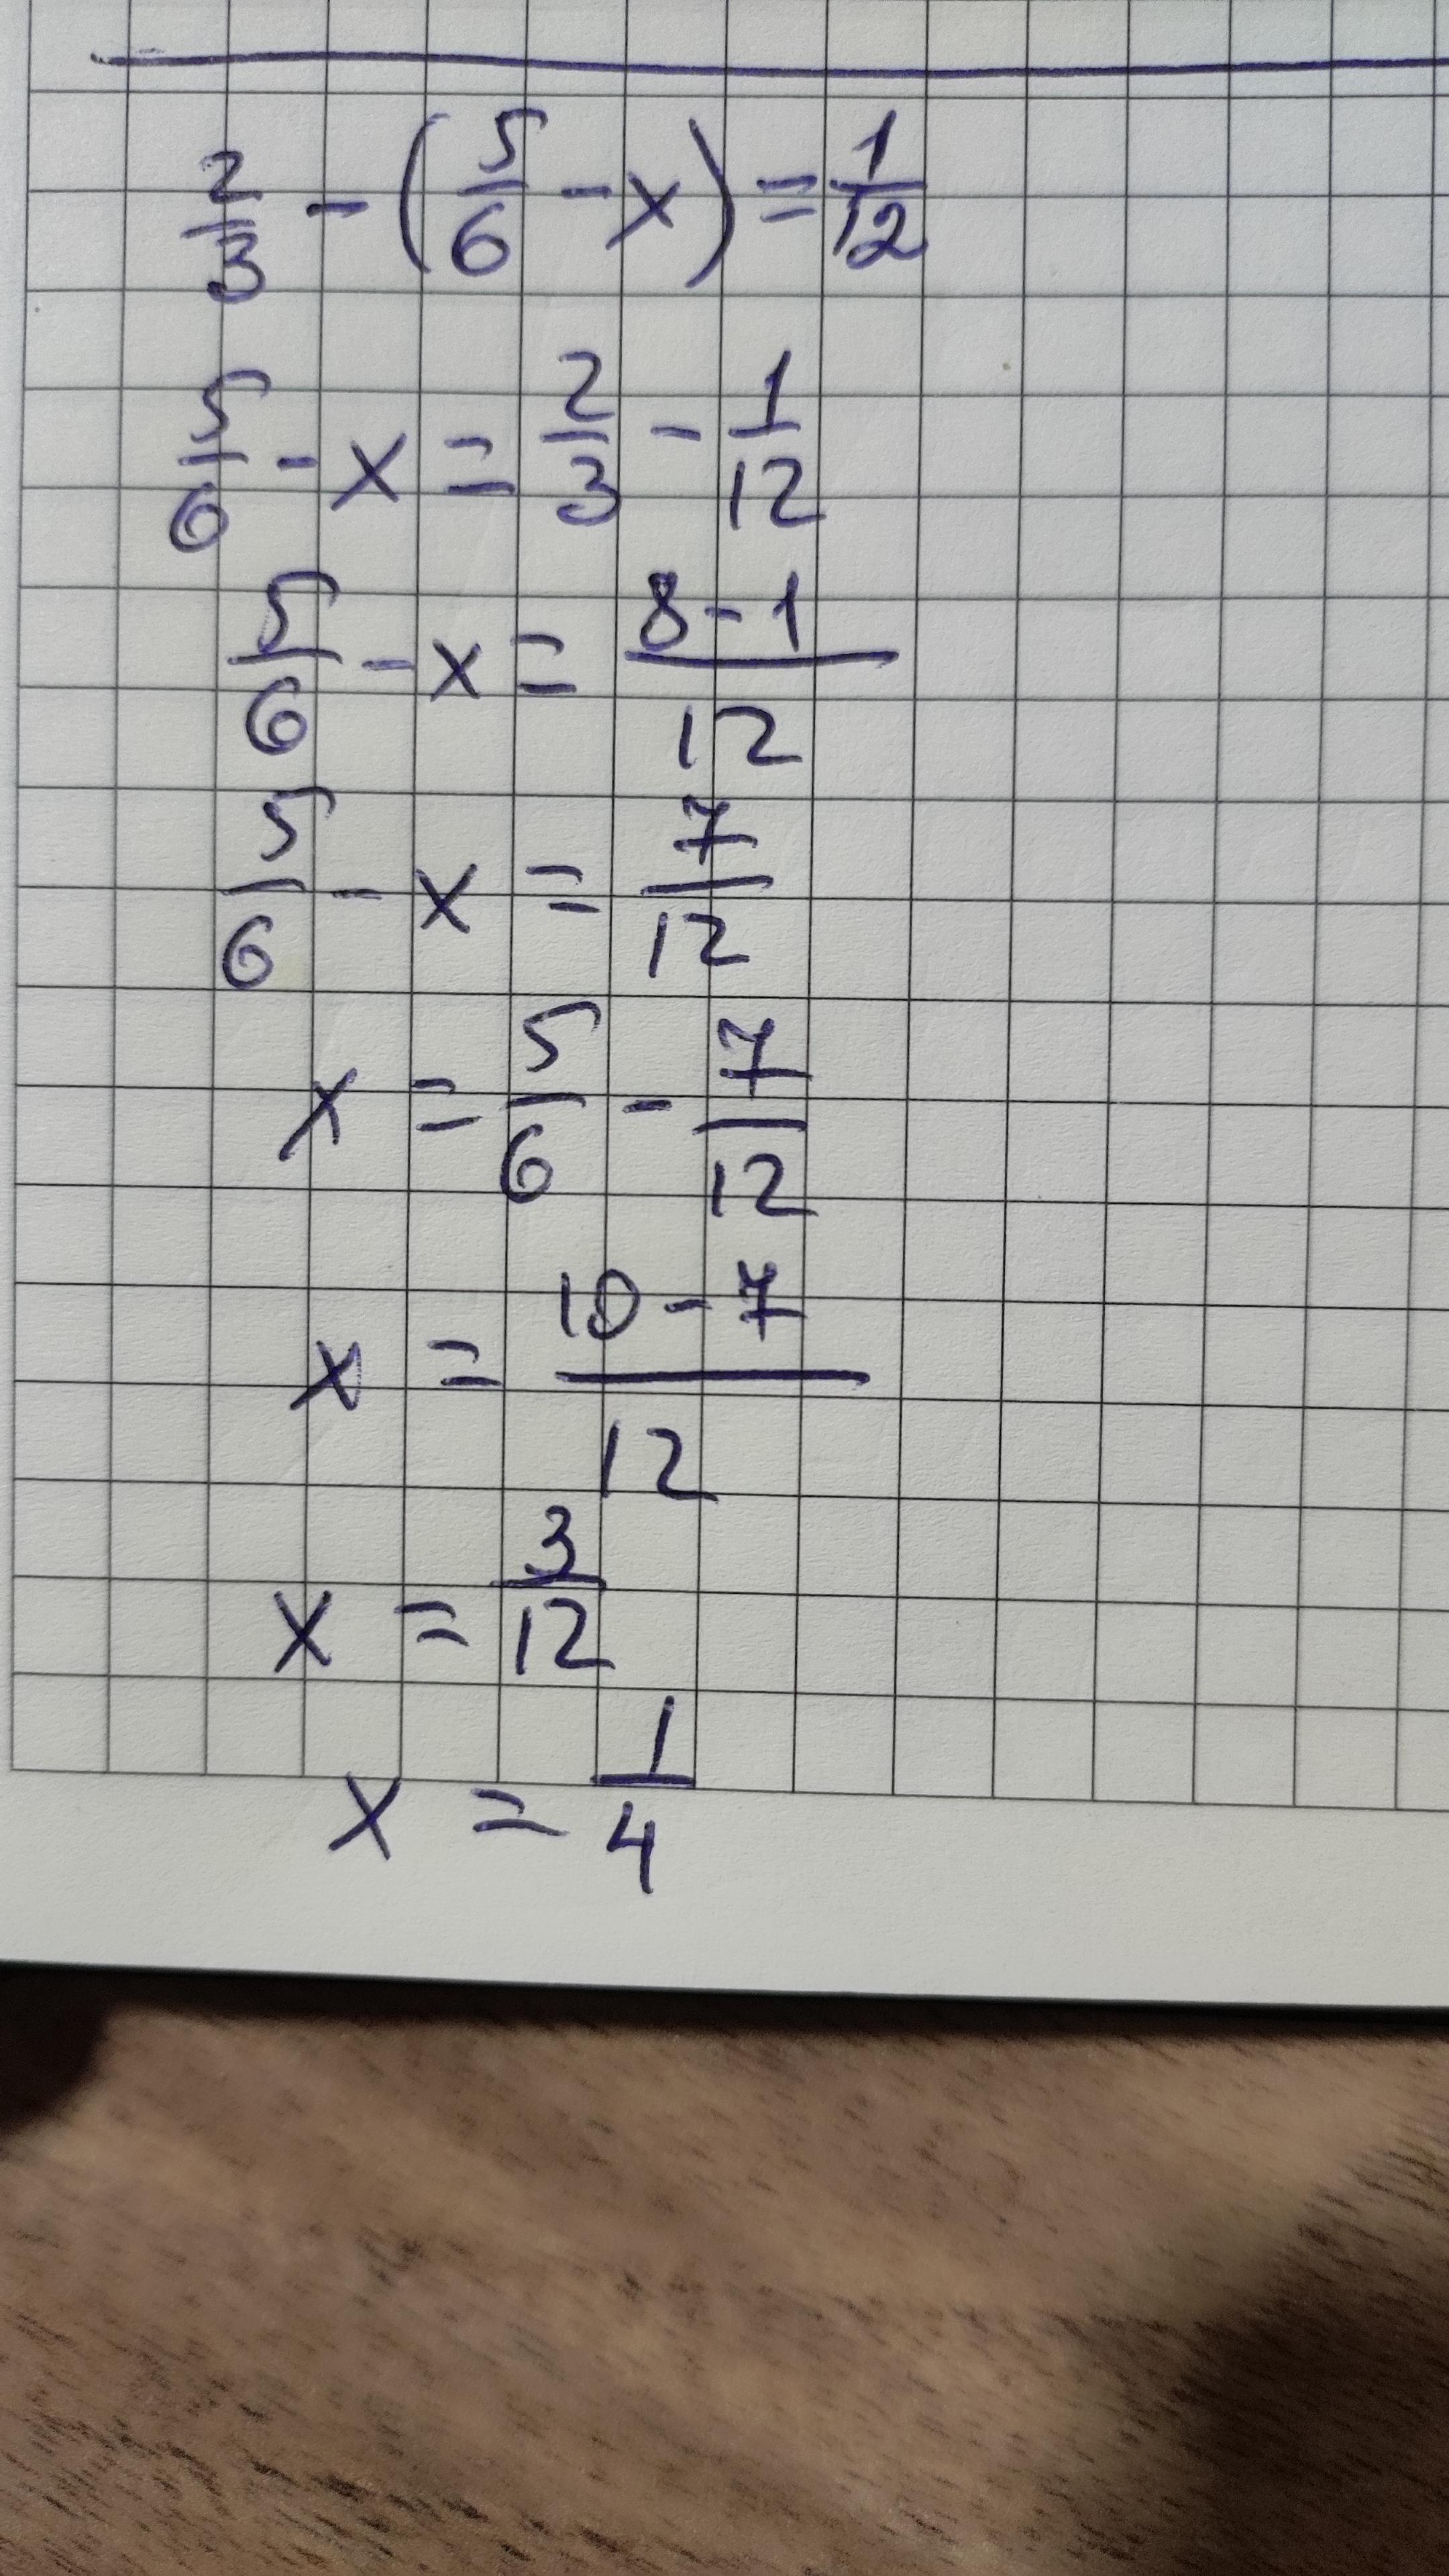 2/3 - (5/6 - x) = 1/12
5/6 - x = 2/3 - 1/12
5/6 - x = (8-1)/12
5/6 - x = 7/12
x = 5/6 - 7/12
x = (10-7)/12
x = 3/12
x = 1/4